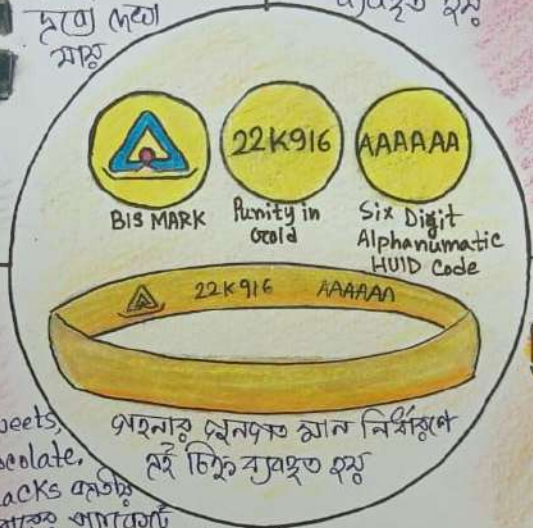 দ্রব্যে দেখা
যায়
ব্যবহৃত হয়
22K916
AAAAAA
BIS MARK
Purity in
Gold
Six Digit
Alphanumatic
HUID Code
22K916 AAAAAA
গহনার গুনগত মান নির্ধারণে
এই চিহ্ন ব্যবহৃত হয়
eets,
colate,
acks জাতীয়